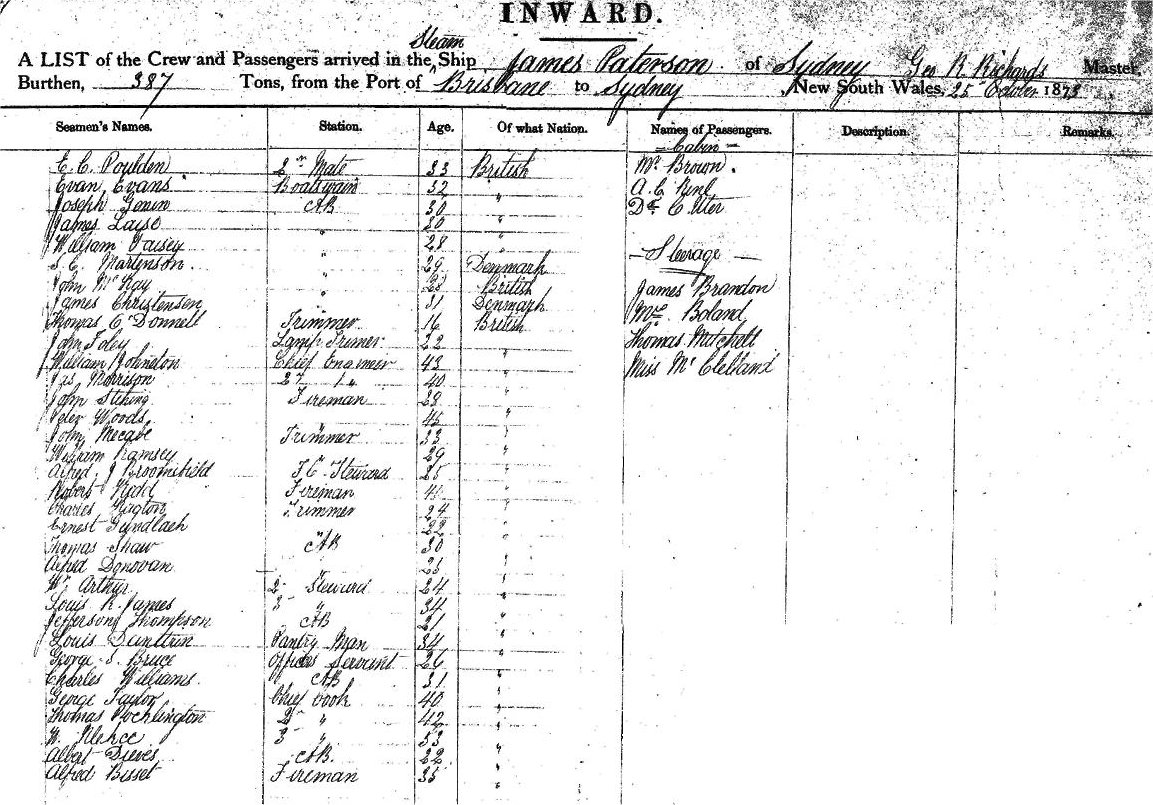 INWARD.
Steam
A LIST of the Crew and Passengers arrived in the Ship James Paterson of Sydney Geo R. Richards Master,
Burthen, 387 Tons, from the Port of Brisbane to Sydney, New South Wales, 25 1873
Seamen's Names. Station. Age. Of what Nation. Names of Passengers. Description. Remarks.
- Cabin -
E. C. Poulden 2nd Mate 33 British Mr Brown.
Evan Evans Boatswain 32 " A. C.
Joseph AB 30 " Dr C
James 30 "
William " 28 " - Steerage -
S. C. Martenson " 29 Denmark
John McKay " 28 British James Brandon
James Christensen " 31 Denmark Boland
Thomas O'Donnell Trimmer 16 British
John Foley Lamp Trimer 22 " Thomas Mitchell
William Johnston Chief Engineer 43 " Miss McClelland
Jas Morrison 2nd " 40 "
John Fireman 28 "
Peter Woods 45 "
John Mecabe Trimmer 33 "
William Ramsey 29 "
Alfred J Broomfield Steward 25 "
Robert Kidd Fireman "
Charles Trimmer 24 "
Ernest Gundlach 22 "
Thomas Shaw AB 30 "
Alfred Donovan "
Wm Arthur 2 Steward 24 "
Louis R. James 3 " 34 "
Jefferson Thompson AB 21 "
Louis Pantry Man 34 "
George S. Bruce Officers Servant 26 "
Charles Williams. AB 31 "
George Taylor Chief Cook 40 "
Thomas Pocklington 2 " 42 "
W. 3 " 53 "
Albert AB. 22 "
Alfred Bisset Fireman 35 "